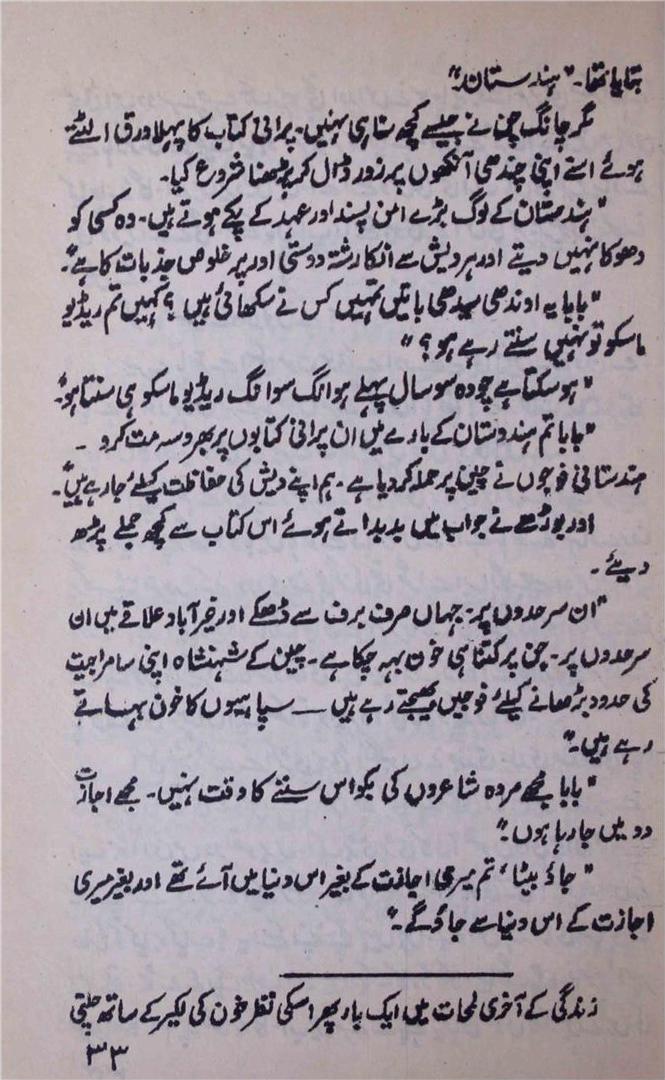 بتایا تھا۔ "ہندستان"
مگر چانگ چن نے جیسے کچھ سنا ہی نہیں۔ پرانی کتاب کا پہلا ورق الٹتے
ہوئے اسنے اپنی چندھی آنکھوں پر زور ڈال کر پڑھنا شروع کیا۔
"ہندستان کے لوگ بڑے امن پسند اور عہد کے پکے ہوتے ہیں۔ وہ کسی کو
دھوکا نہیں دیتے اور ہر دیش سے انکا رشتہ دوستی اور پر خلوص جذبات کا ہے"۔
"بابا یہ اوندھی سیدھی باتیں تمہیں کس نے سکھائی ہیں ؟ کہیں تم ریڈیو
ماسکو تو نہیں سنتے رہے ہو؟"
"ہو سکتا ہے چودہ سو سال پہلے ہوانگ سوانگ ریڈیو ماسکو ہی سنتا ہو"۔
"بابا تم ہندوستان کے بارے میں ان پرانی کتابوں پر بھروسہ مت کرو ۔
ہندستانی فوجوں نے چین پر حملہ کر دیا ہے۔ ہم اپنے دیش کی حفاظت کیلئے جا رہے ہیں"۔
اور بوڑھے نے جواب میں بدبداتے ہوئے اس کتاب سے کچھ جملے پڑھ
دیئے۔
"ان سرحدوں پر۔ جہاں صرف برف سے ڈھکے اور غیر آباد علاقے ہیں ان
سرحدوں پر۔ جن پر کتنا ہی خون بہہ چکا ہے۔ چین کے شہنشاہ اپنی سامراجیت
کی حدود بڑھانے کیلئے فوجیں بھیجتے رہے ہیں — سپاہیوں کا خون بہاتے
رہے ہیں۔"
"بابا مجھے مردہ شاعروں کی بکواس سننے کا وقت نہیں۔ مجھے اجازت
دو میں جا رہا ہوں۔"
"جاؤ بیٹا، تم میری اجازت کے بغیر اس دنیا میں آئے تھے اور بغیر میری
اجازت کے اس دنیا سے جاؤ گے۔"
زندگی کے آخری لمحات میں ایک بار پھر اسکی نظر خون کی لکیر کے ساتھ چلتی
۳۳